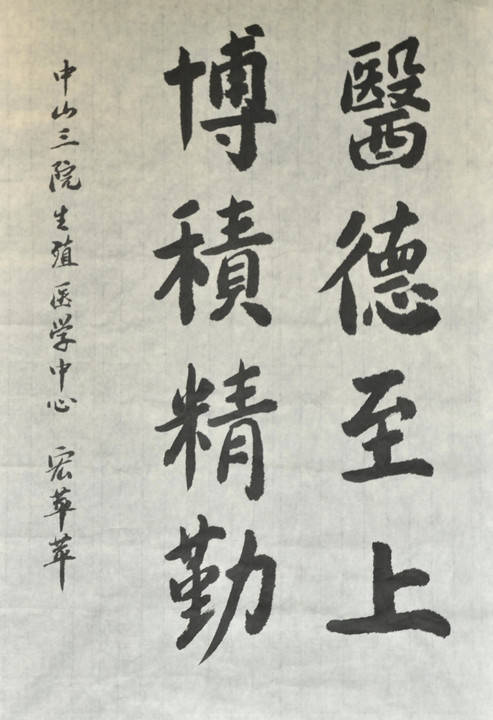 醫德至上
博積精勤
中山三院生殖医学中心 宏苹苹